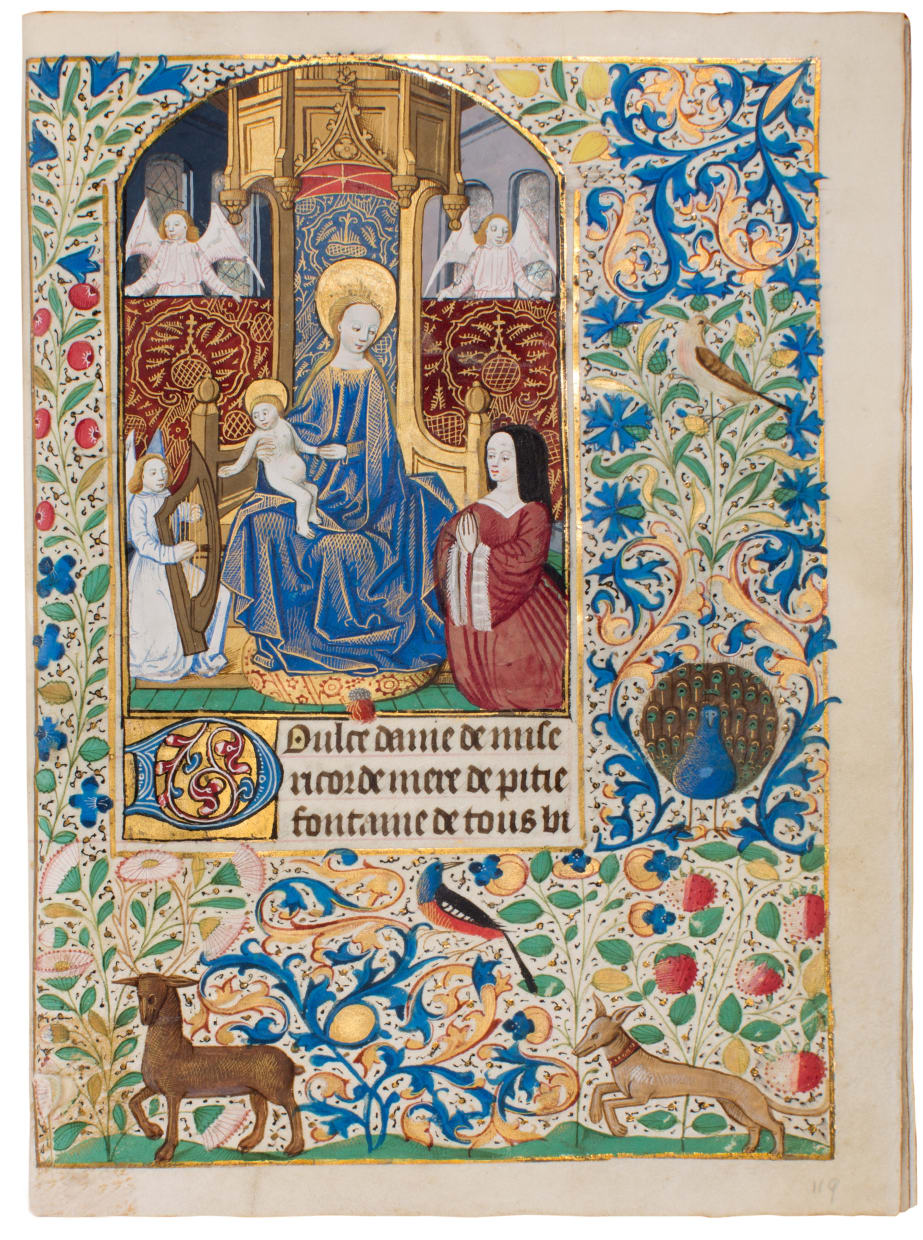 Doulce dame de mise
ricorde mere de pitie
fontaine de tous bi
119